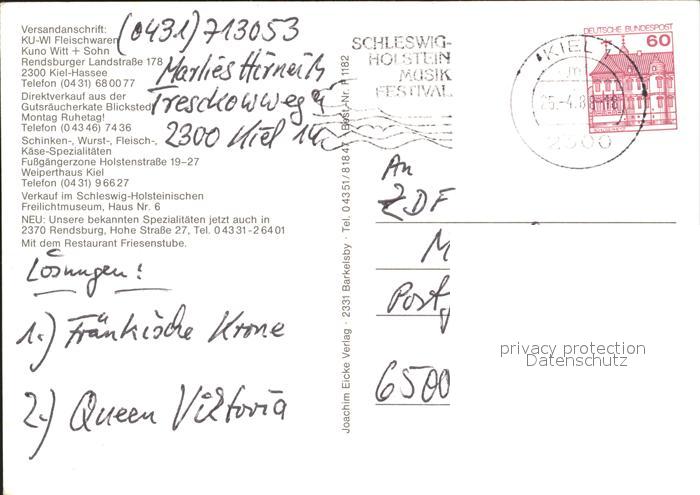 Versandanschrift:
KU-WI Fleischwaren
Kuno Witt + Sohn
Rendsburger Landstraße 178
2300 Kiel-Hassee
Telefon (04 31) 68 00 77
Direktverkauf aus der
Gutsräucherkate Blickstedt
Montag Ruhetag!
Telefon (0 43 46) 74 36
Schinken-, Wurst-, Fleisch-,
Käse-Spezialitäten
Fußgängerzone Holstenstraße 19–27
Weiperthaus Kiel
Telefon (04 31) 9 66 27
Verkauf im Schleswig-Holsteinischen
Freilichtmuseum, Haus Nr. 6
NEU: Unsere bekannten Spezialitäten jetzt auch in
2370 Rendsburg, Hohe Straße 27, Tel. 0 43 31 - 2 64 01
Mit dem Restaurant Friesenstube.
(0431) 713053
Marlies
Treskowweg 9
2300 Kiel 14
Lösungen!
1.) Fränkische Krone
2.) Queen Viktoria
Joachim Eicke Verlag · 2331 Barkelsby · Tel. 0 43 51 / 8 18 47 · Best.-Nr. P 1182
SCHLESWIG-
HOLSTEIN
MUSIK
FESTIVAL
KIEL 1
2300
DEUTSCHE BUNDESPOST
60
An
ZDF
M
Post
6500
privacy protection
Datenschutz